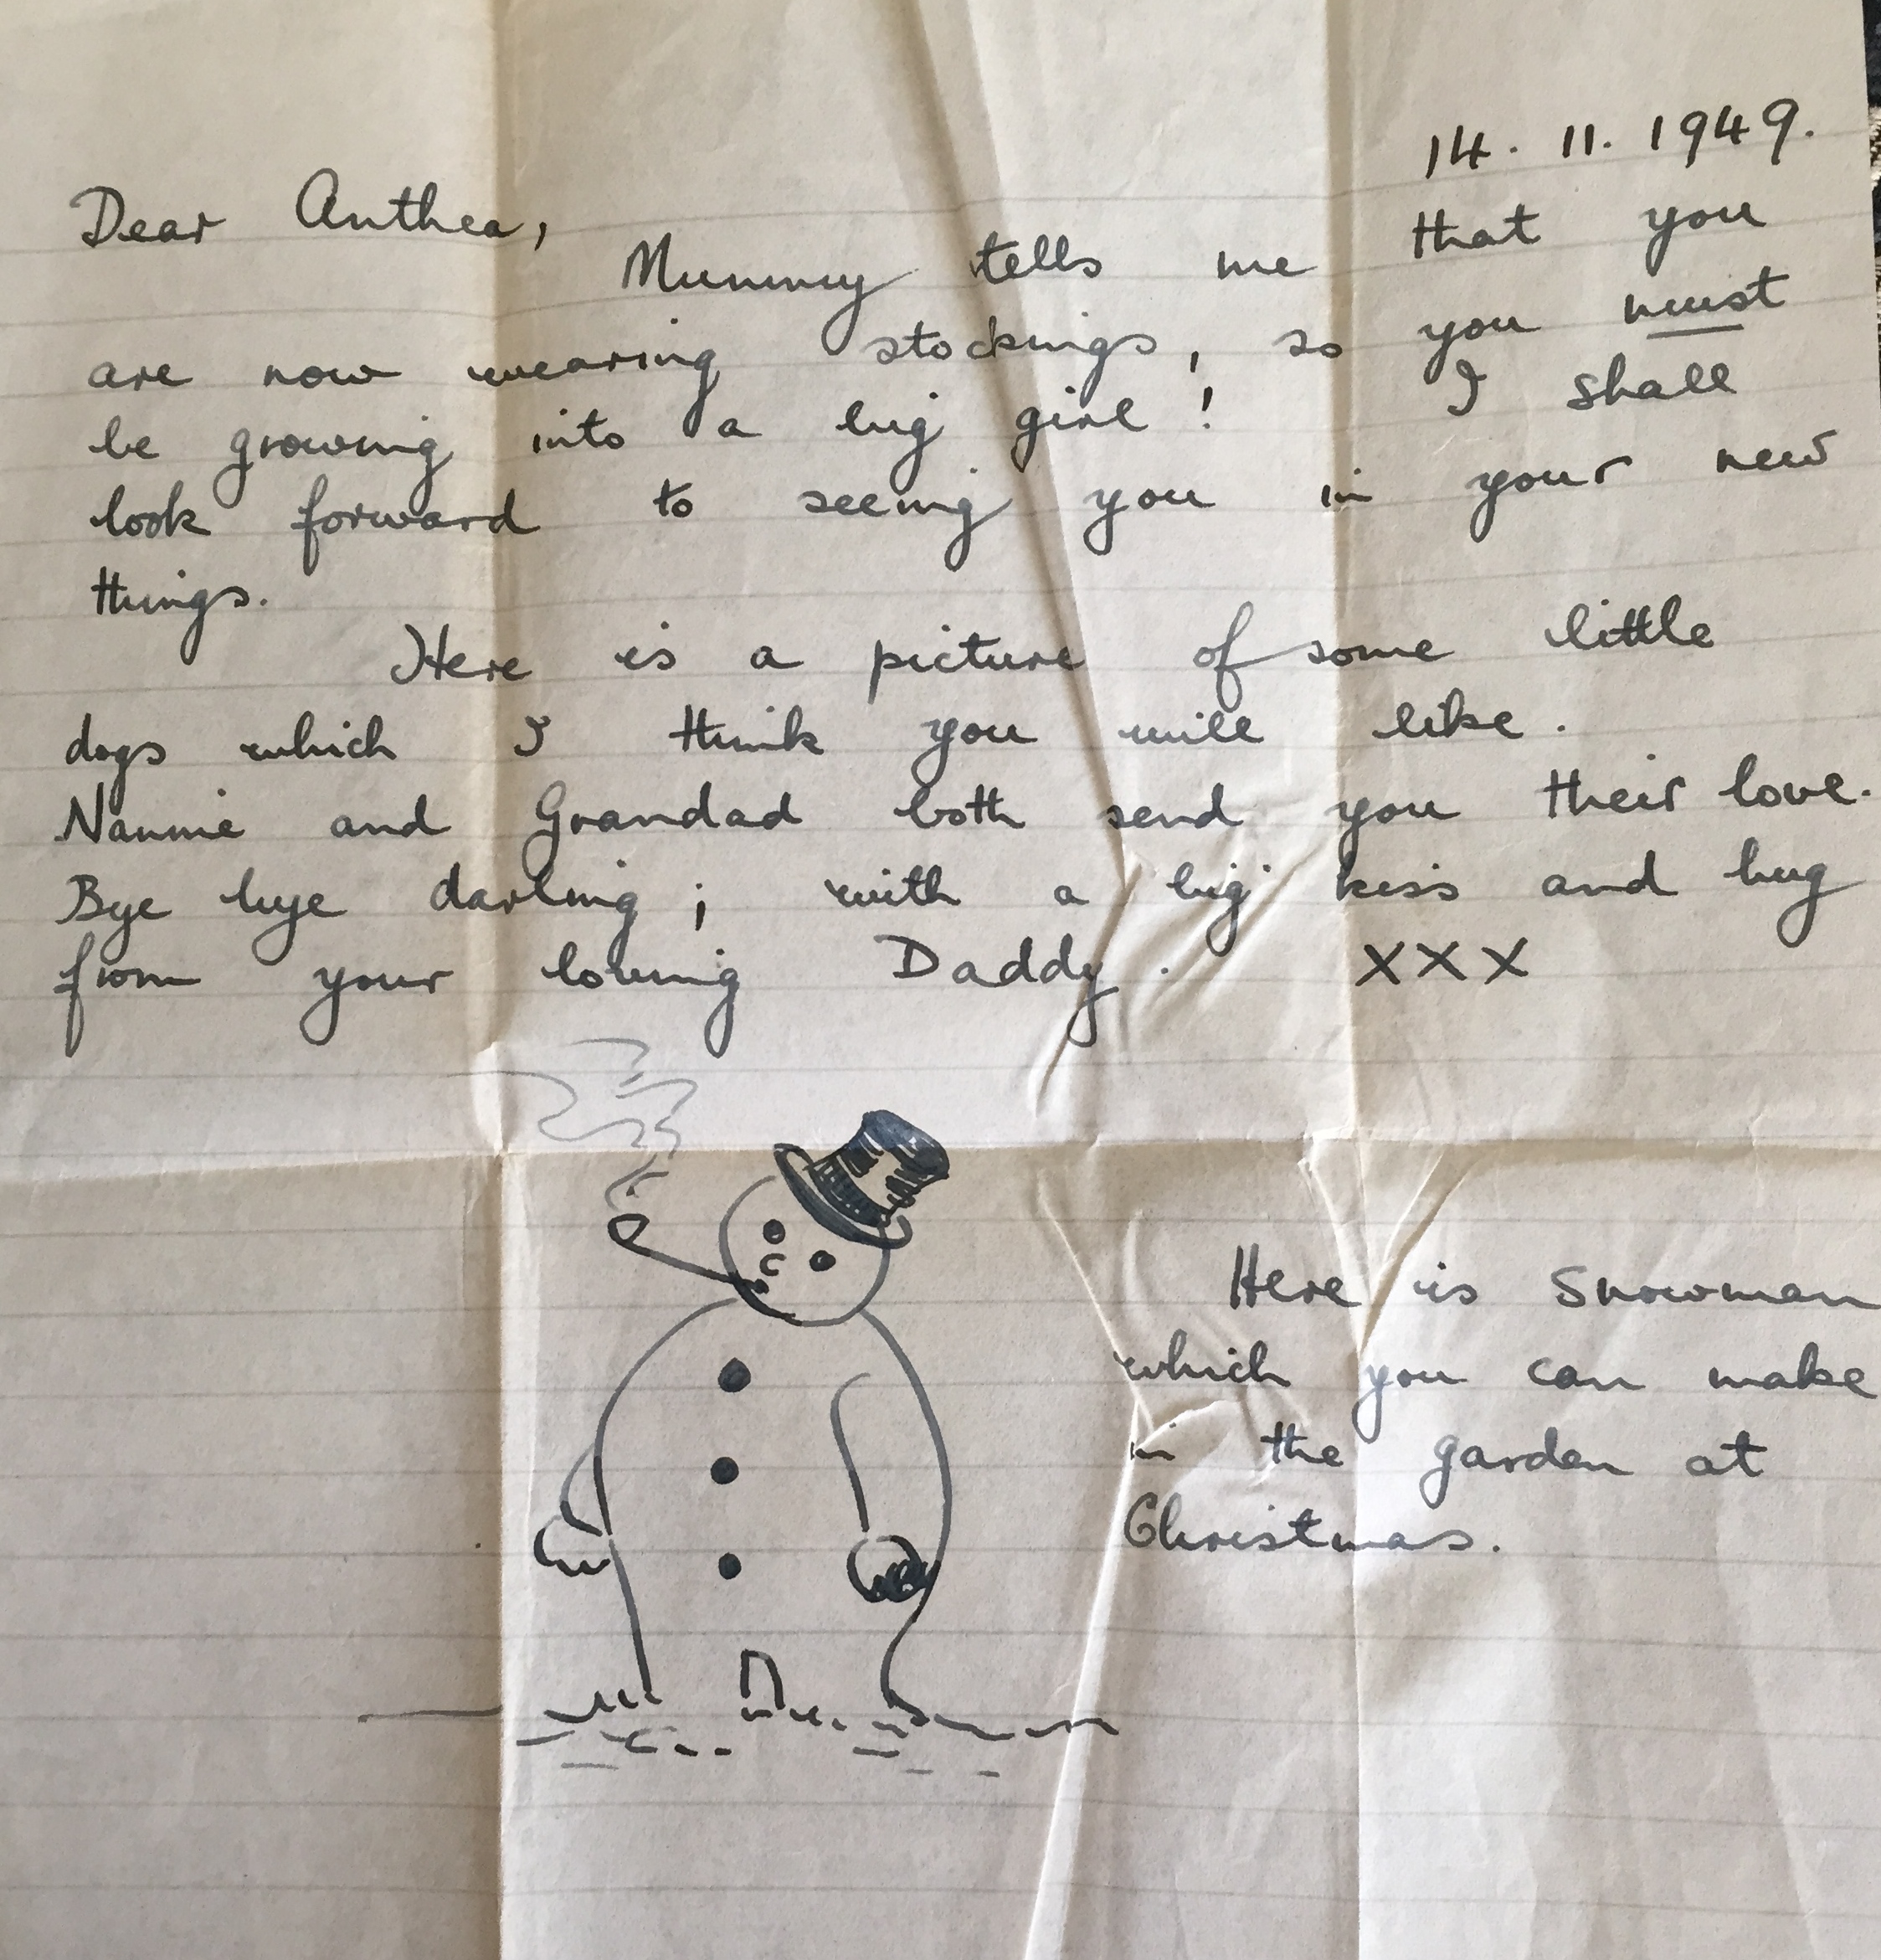 14. 11. 1949.
Dear Anthea,
Mummy tells me that you
are now wearing stockings, so you must
be growing into a big girl! I shall
look forward to seeing you in your new
things.
Here is a picture of some little
dogs which I think you will like.
Nannie and Grandad both send you their love.
Bye bye darling; with a big kiss and hug
from your loving Daddy. XXX
Here is Snowman
which you can make
in the garden at
Christmas.